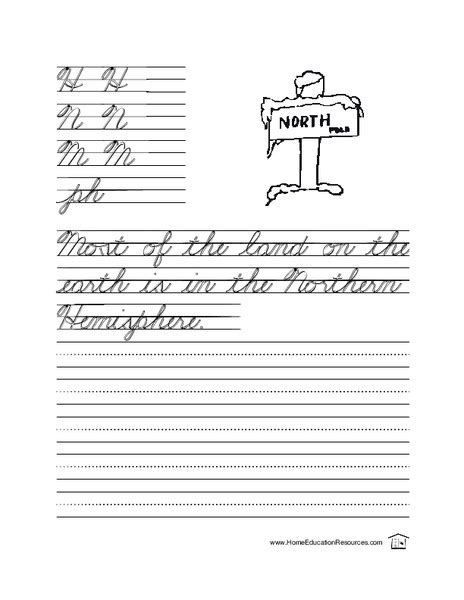 H H
N N
M M
ph
NORTH
POLE
Most of the land on the
earth is in the Northern
Hemisphere.
www.HomeEducationResources.com